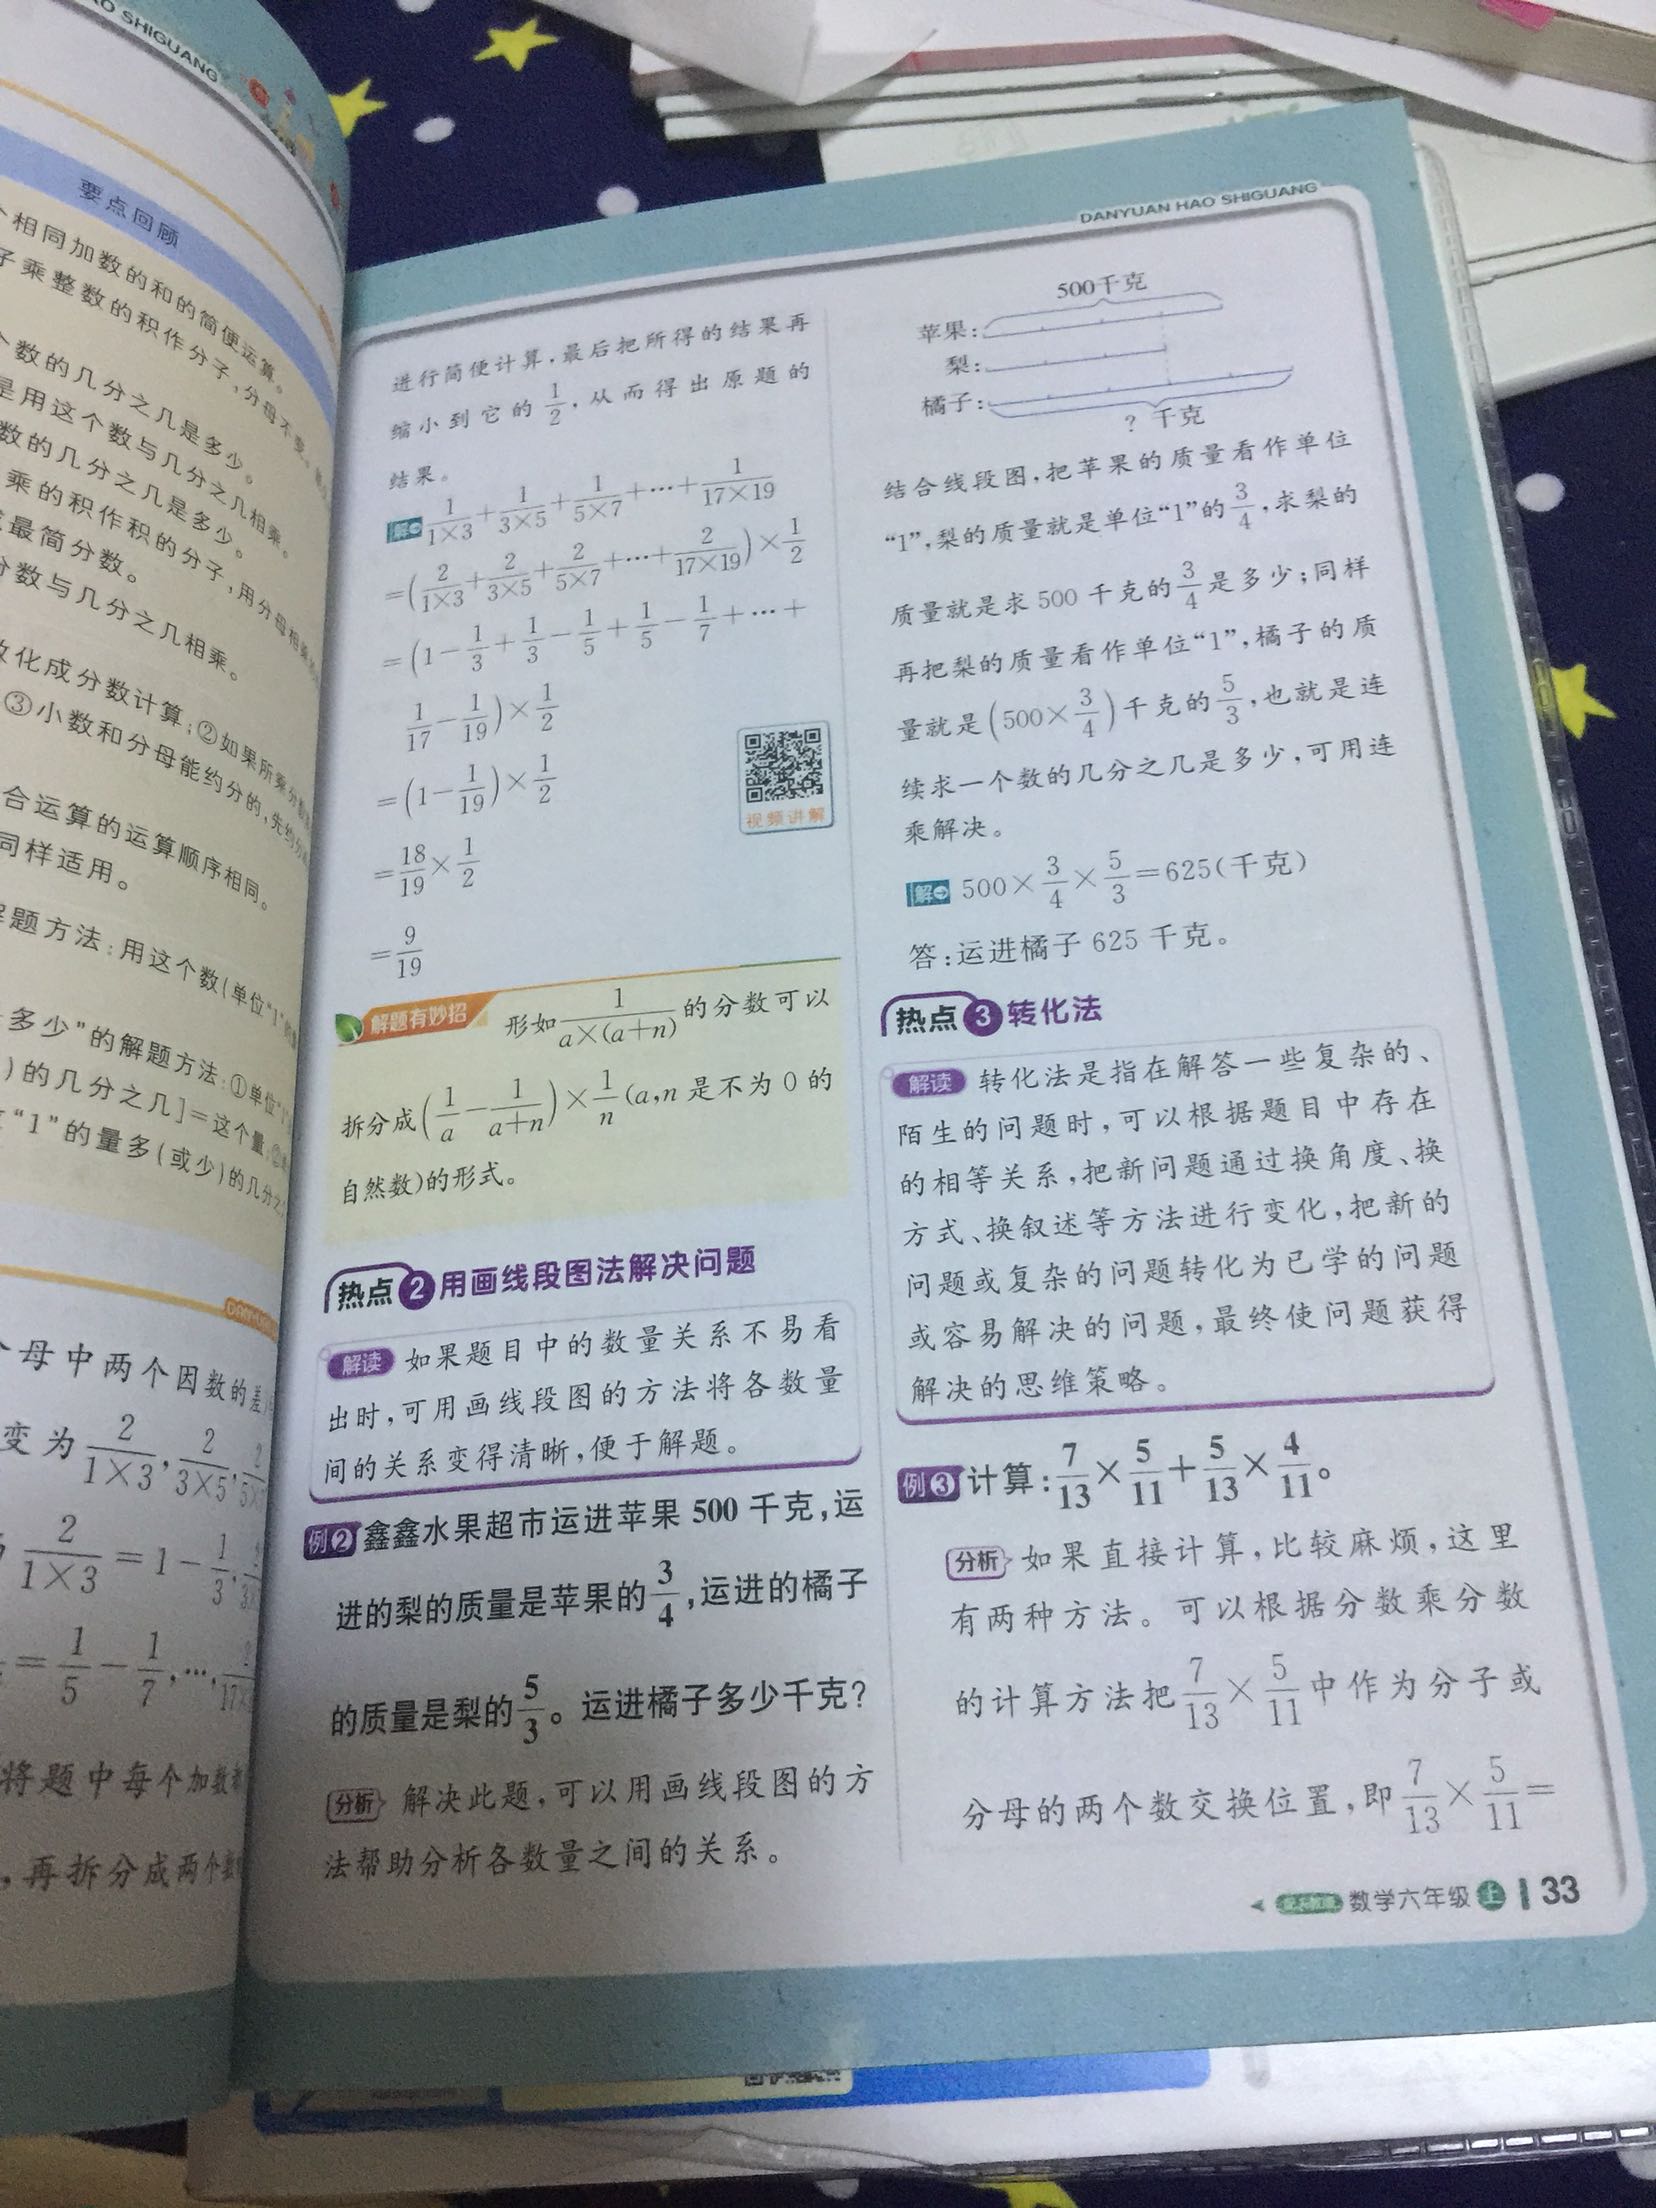 SHIGUANG
要点回顾
相同加数的和的简便运算。
子乘整数的积作分子,分母不变。
个数的几分之几是多少。
是用这个数与几分之几相乘。
数的几分之几是多少。
乘的积作积的分子,用分母相乘
最简分数。
分数与几分之几相乘。
化成分数计算;②如果所乘分数
③小数和分母能约分的,先约分
合运算的运算顺序相同。
同样适用。
题方法:用这个数(单位“1”的
多少”的解题方法:①单位“1”
)的几分之几]=这个量;②
“1”的量多(或少)的几分之
母中两个因数的差
变为2/(1×3),2/(3×5),
2/(1×3)=1-1/3,
=1/5-1/7,…,
将题中每个加数
,再拆分成两个
DANYUAN HAO SHIGUANG
进行简便计算,最后把所得的结果再
缩小到它的1/2,从而得出原题的
结果。
解 1/(1×3)+1/(3×5)+1/(5×7)+…+1/(17×19)
=(2/(1×3)+2/(3×5)+2/(5×7)+…+2/(17×19))×1/2
=(1-1/3+1/3-1/5+1/5-1/7+…+
1/17-1/19)×1/2
=(1-1/19)×1/2
=18/19×1/2
=9/19
视频讲解
解题有妙招 形如1/(a×(a+n))的分数可以
拆分成(1/a-1/(a+n))×1/n(a,n是不为0的
自然数)的形式。
热点2用画线段图法解决问题
解读 如果题目中的数量关系不易看
出时,可用画线段图的方法将各数量
间的关系变得清晰,便于解题。
例2 鑫鑫水果超市运进苹果500千克,运
进的梨的质量是苹果的3/4,运进的橘子
的质量是梨的5/3。运进橘子多少千克?
分析 解决此题,可以用画线段图的方
法帮助分析各数量之间的关系。
500千克
苹果:
梨:
橘子:
?千克
结合线段图,把苹果的质量看作单位
“1”,梨的质量就是单位“1”的3/4,求梨的
质量就是求500千克的3/4是多少;同样
再把梨的质量看作单位“1”,橘子的质
量就是(500×3/4)千克的5/3,也就是连
续求一个数的几分之几是多少,可用连
乘解决。
解 500×3/4×5/3=625(千克)
答:运进橘子625千克。
热点3转化法
解读 转化法是指在解答一些复杂的、
陌生的问题时,可以根据题目中存在
的相等关系,把新问题通过换角度、换
方式、换叙述等方法进行变化,把新的
问题或复杂的问题转化为已学的问题
或容易解决的问题,最终使问题获得
解决的思维策略。
例3 计算:7/13×5/11+5/13×4/11。
分析 如果直接计算,比较麻烦,这里
有两种方法。可以根据分数乘分数
的计算方法把7/13×5/11中作为分子或
分母的两个数交换位置,即7/13×5/11=
数学六年级 上 33